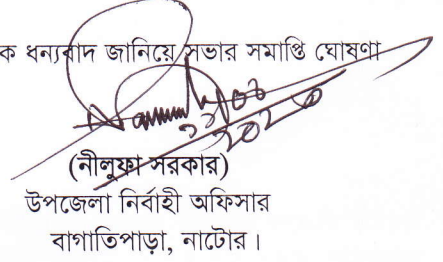 ক ধন্যবাদ জানিয়ে সভার সমাপ্তি ঘোষণা
(নীলুফা সরকার)
উপজেলা নির্বাহী অফিসার
বাগাতিপাড়া, নাটোর।